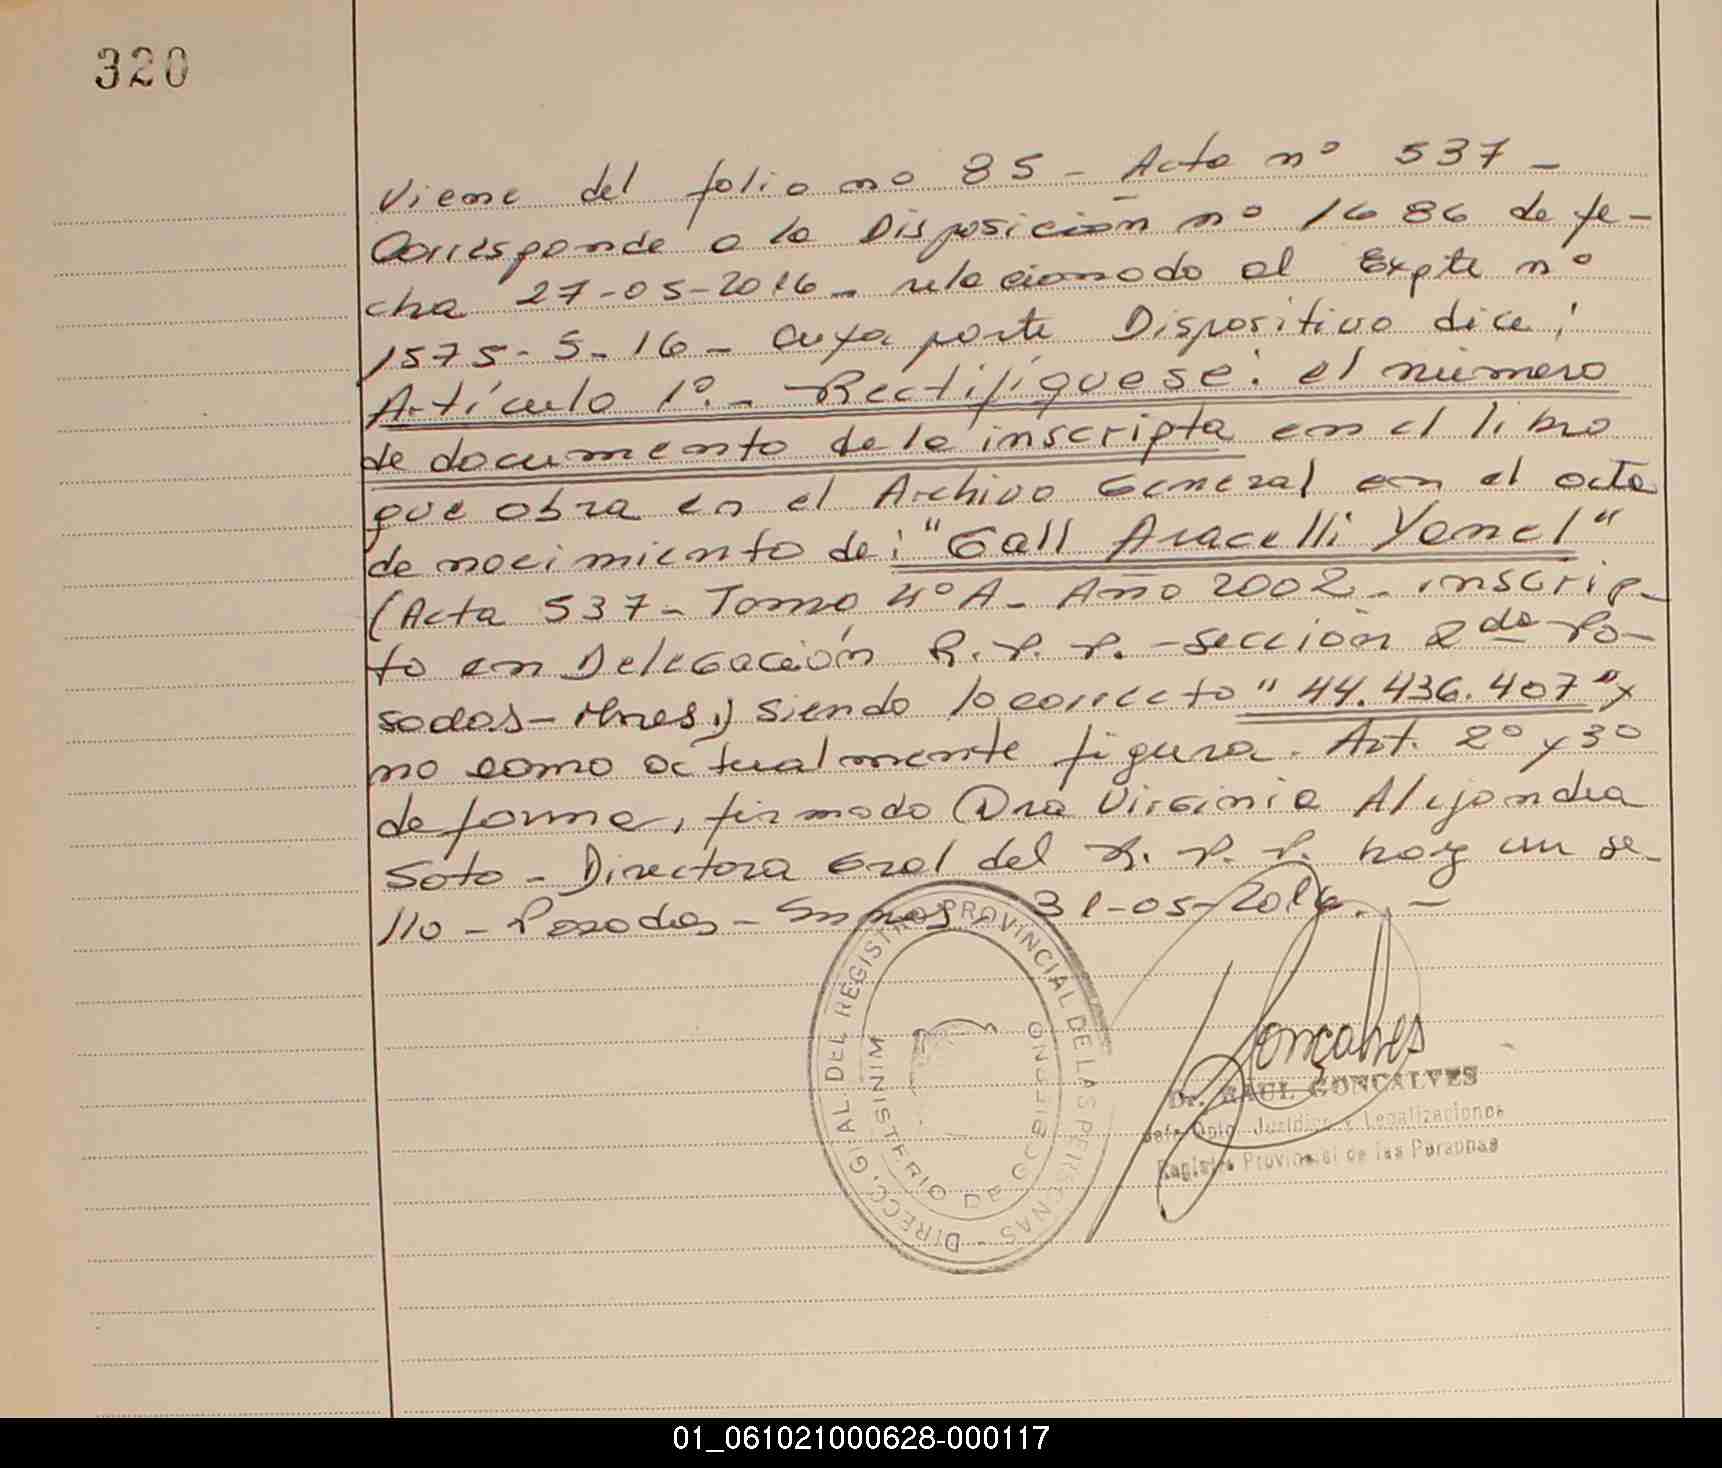 320
Viene del folio no 85 - Acta nº 537 -
Corresponde a la Disposición nº 1686 de fe-
cha 27-05-2016 - relacionado al Expte nº
1575-S-16 - cuya parte Dispositiva dice:
Artículo 1º.- Rectifíquese: el número
de documento de la inscripta en el libro
que obra en el Archivo General en el acta
de nacimiento de: "Gall Aracelli Yanel"
(Acta 537 - Tomo 4º A - Año 2002 - inscrip-
to en Delegación R.P.P. - sección 2da Po-
sadas - Mnes.) siendo lo correcto "44.436.407" y
no como actualmente figura. Art. 2º y 3º
de forma, firmado Dra Virginia Alejandra
Soto - Directora Gral del R.P.P. hay un se-
llo - Posadas - Mnes, 31-05-2016. -
DIRECC. GRAL. DEL REGISTRO PROVINCIAL DE LAS PERSONAS -
MINISTERIO DE GOBIERNO
Gonçalves
Dr. RAUL GONCALVES
Jefe Dpto. Jurídico y Legalizaciones
Registro Provincial de las Personas
01_061021000628-000117